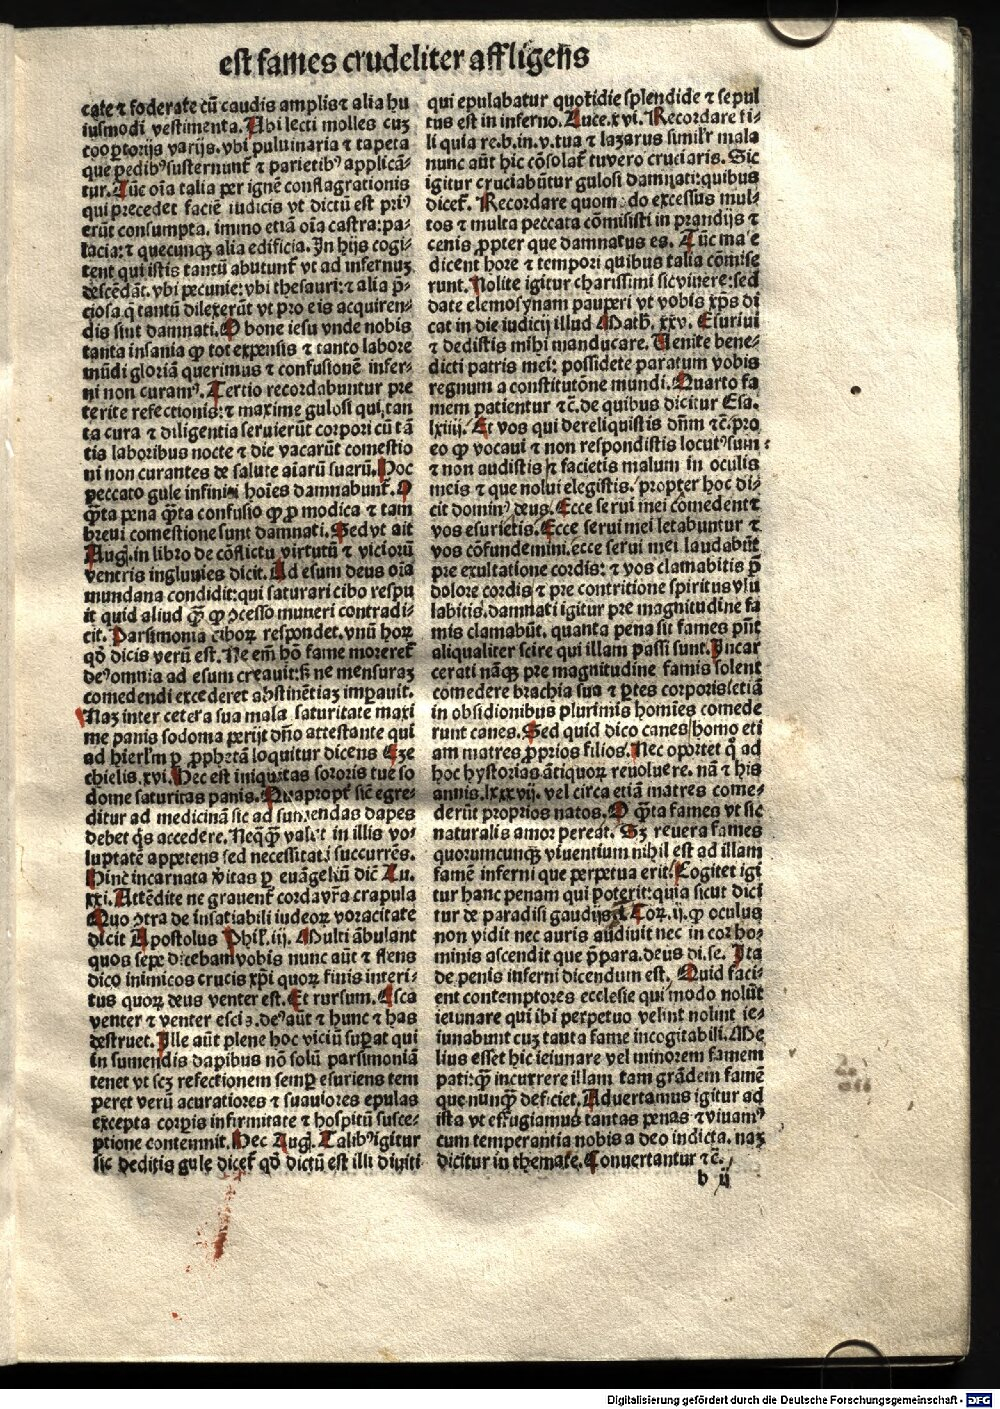 est fames crudeliter affligens
cate ⁊ foderate cū caudis amplis ⁊ alia hu
iusmodi vestimenta. Ubi lecti molles cuʒ
coopertorijs varijs. vbi puluinaria ⁊ tapeta
que pedibꝰ susternunt᷑ ⁊ parietibꝰ applicā-
tur. Tūc oīa talia per ignē conflagrationis
qui precedet faciē iudicis vt dictū est priꝰ
erūt consumpta. immo etiā oīa castra: pa-
lacia: ⁊ quecunqꝫ alia edificia. In hijs cogi-
tent qui istis tantū abutunt᷑ vt ad infernuʒ
descēdāt. vbi pecunie: vbi thesauri: ⁊ alia p̄-
ciosa. q̄ tantū dilexerūt vt pro eis acquiren-
dis sint damnati. O bone iesu vnde nobis
tanta insania ꝙ tot expensis ⁊ tanto labore
mūdi gloriā querimus ⁊ confusionē infer-
ni non curamꝰ. Tertio recordabuntur pre
terite refectionis: ⁊ maxime gulosi qui tan
ta cura ⁊ diligentia seruierūt corpori cū tā
tis laboribus nocte ⁊ die vacarūt comestio
ni non curantes de salute aīarū suarū. Hoc
peccato gule infiniti hoīes damnabunt᷑. O
q̄ta pena q̄ta confusio ꝙ ꝓ modica ⁊ tam
breui comestione sunt damnati. Sed vt ait
Aug. in libro de cōflictu virtutū ⁊ viciorū
ventris ingluuies dicit. Ad esum deus oīa
mundana condidit: qui saturari cibo respu
it quid aliud q̄ꝫ ꝙ ꝯcesso muneri contradi-
cit. Parsimonia ciboꝝ respondet. vnū hoꝝ
qd̄ dicis verū est. Ne em̄ hō fame moreret᷑
deꝰ omnia ad esum creauit: sꝫ ne mensuraʒ
comedendi excederet abstinētiaʒ imꝑauit.
Naʒ inter cetera sua mala saturitate maxi
me panis sodoma perijt dn̄o attestante qui
ad hierl'm ꝑ ꝓphetā loquitur dicens Eze
chielis. xvi. Hec est iniquitas sororis tue so
dome saturitas panis. Quapropt᷑ sic̄ egre-
ditur ad medicinā sic ad sumendas dapes
debet q̄s accedere. Neqq̄ꝫ valet in illis vo-
luptatē appetens sed necessitati succurrēs.
Hinc incarnata v̄itas ꝑ euāgeliū dic̄ Lu.
xxi. Attēdite ne grauent᷑ corda vr̄a crapula
Quo ꝯtra de insatiabili iudeoꝝ voracitate
dicit Apostolus Phil'. iij. Multi ābulant
quos sepe dicebam vobis nunc aūt ⁊ flens
dico inimicos crucis xp̄i quoꝝ finis interi-
tus quoꝝ deus venter est. Et rursum. Esca
venter ⁊ venter escis. deꝰ aūt ⁊ hunc ⁊ has
destruet. Ille aūt plene hoc viciū suꝑat qui
in sumendis dapibus nō solū parsimoniā
tenet vt scꝫ refectionem semꝑ esuriens tem
peret verū acuratiores ⁊ suauiores epulas
excepta corꝑis infirmitate ⁊ hospitū susce-
ptione contemnit. Hec Aug. Talibꝰ igitur
sic deditis gule dicet᷑ qd̄ dictū est illi diuiti
qui epulabatur quotidie splendide ⁊ sepul
tus est in inferno. Luce. xvi. Recordare fi-
li quia re. b. in. v. tua ⁊ lazarus simil'r mala
nunc aūt hic cōsolat᷑ tu vero cruciaris. Sic
igitur cruciabūtur gulosi damnati: quibus
dicet᷑. Recordare quomodo excessus mul-
tos ⁊ multa peccata cōmisisti in prandijs ⁊
cenis ꝓpter que damnatus es. Tūc male
dicent hore ⁊ tempori quibus talia cōmise
runt. Nolite igitur charissimi sic viuere: sed
date elemosynam pauperi vt vobis xp̄s di
cat in die iudicij illud Math. xxv. Esuriui
⁊ dedistis mihi manducare. Uenite bene-
dicti patris mei: possidete paratum vobis
regnum a constitutōne mundi. Quarto fa
mem patientur ⁊c̄. de quibus dicitur Esa.
lxiiij. Et vos qui dereliquistis dn̄m ⁊c̄. pro
eo ꝙ vocaui ⁊ non respondistis locutꝰ sum:
⁊ non audistis ⁊ facietis malum in oculis
meis ⁊ que nolui elegistis. propter hoc di-
cit dominꝰ deus. Ecce serui mei cōmedent ⁊
vos esurietis. Ecce serui mei letabuntur ⁊
vos cōfundemini. ecce serui mei laudabūt
pre exultatione cordis: ⁊ vos clamabitis p̄
dolore cordis ⁊ pre contritione spiritus vlu
labitis. damnati igitur pre magnitudine fa
mis clamabūt. quanta pena sit fames pn̄t
aliqualiter scire qui illam passi sunt. Incar
cerati nāqꝫ pre magnitudine famis solent
comedere brachia sua ⁊ ꝑtes corporis: etiā
in obsidionibus plurimis homies comede
runt canes. Sed quid dico canes/ homo eti
am matres ꝓprios filios. Nec oportet q̊ ad
hoc hystorias ātiquoꝝ reuoluere. nā ⁊ his
annis. lxxxvij. vel circa etiā matres come-
derūt proprios natos. O q̄ta fames vt sic
naturalis amor pereat. Sꝫ reuera fames
quorumcunqꝫ viuentium nihil est ad illam
famē inferni que perpetua erit. Cogitet igi
tur hanc penam qui poterit: quia sicut dici
tur de paradisi gaudijs. Cor. ij. ꝙ oculus
non vidit nec auris audiuit nec in cor ho-
minis ascendit que p̄para. deus di. se. Ita
de penis inferni dicendum est. Quid faci-
ent contemptores ecclesie qui modo nolūt
ieiunare qui ibi perpetuo velint nolint ie-
iunabunt cuʒ tanta fame incogitabili. Me
lius esset hic ieiunare vel minorem famem
pati: q̄ꝫ incurrere illam tam grādem famē
que nunq̄ꝫ deficiet. Aduertamus igitur ad
ista vt effugiamus tantas penas ⁊ viuamꝰ
cum temperantia nobis a deo indicta. naʒ
dicitur in themate. Conuertantur ⁊c̄.
b ij
Digitalisierung gefördert durch die Deutsche Forschungsgemeinschaft - DFG